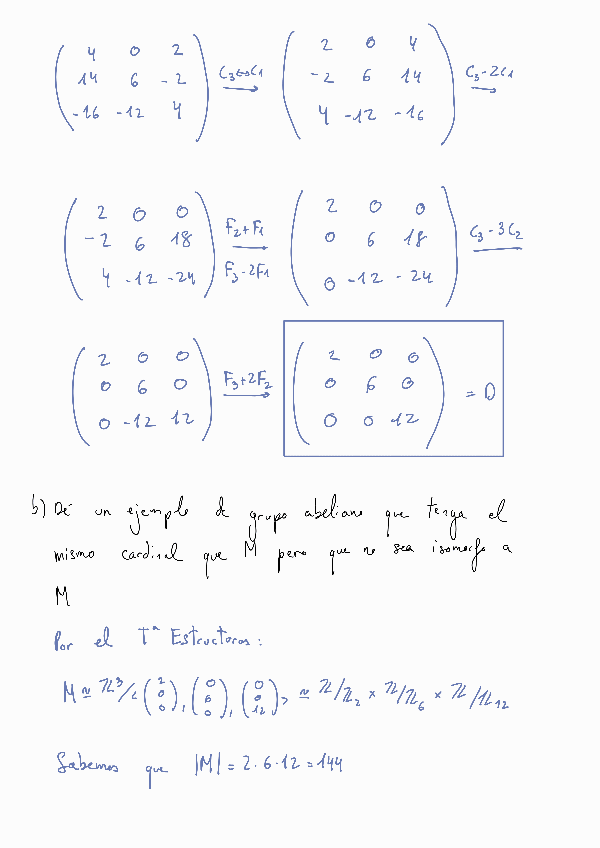 4 0 2
14 6 -2
-16 -12 4
C3↔C1
2 0 4
-2 6 14
4 -12 -16
C3-2C1
2 0 0
-2 6 18
4 -12 -24
F2+F1
F3-2F1
2 0 0
0 6 18
0 -12 -24
C3-3C2
2 0 0
0 6 0
0 -12 12
F3+2F2
2 0 0
0 6 0
0 0 12
= D
b) Dé un ejemplo de grupo abeliano que tenga el
mismo cardinal que M pero que no sea isomorfo a
M
Por el Tª Estructoras:
M ≃ ℤ³/<(2 0 0), (0 6 0), (0 0 12)> ≃ ℤ/ℤ2 × ℤ/ℤ6 × ℤ/ℤ12
Sabemos que |M| = 2·6·12 = 144